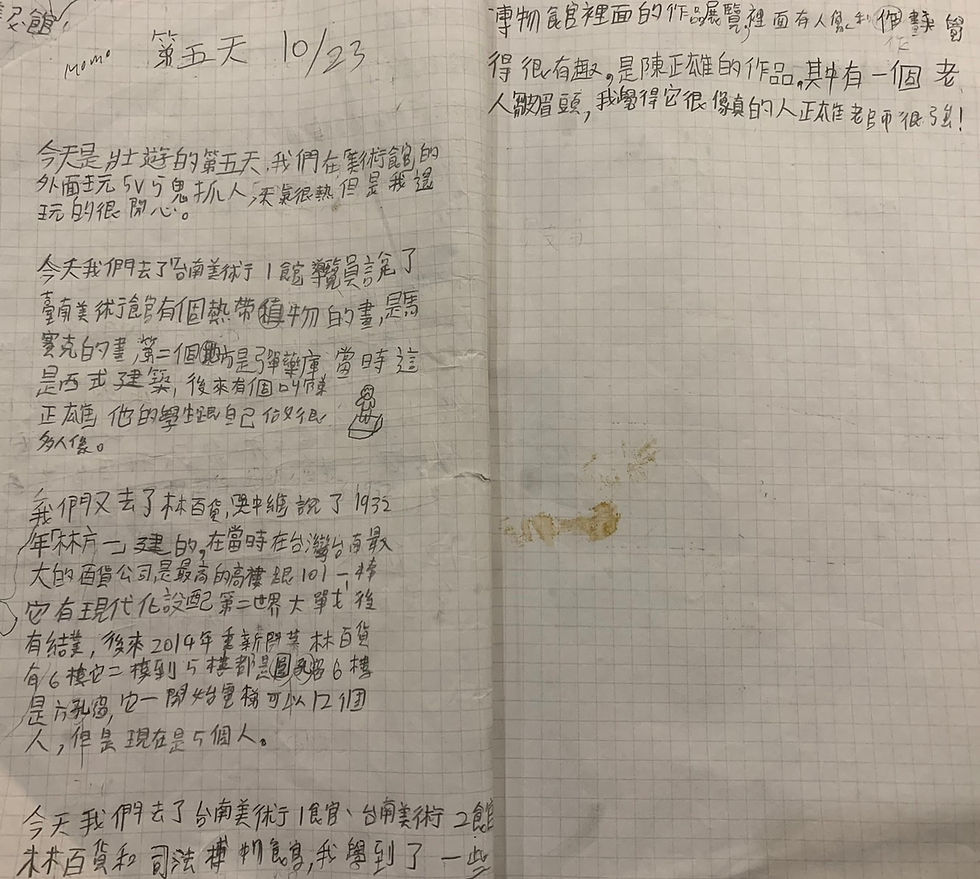 Momo 第五天 10/23
今天是壯遊的第五天,我們在美術館的
外面玩5V5鬼抓人,天氣很熱但是我還
玩的很開心。
今天我們去了台南美術1館 導覽員說了
臺南美術館有個熱帶植物的畫,是馬
賽克的畫,第二個地方是彈藥庫 當時這
是西式建築,後來有個叫陳
正雄 他的學生跟自己 很
多人像。
我們又去了林百貨, 說了1932
年「林方一」建的,在當時在台灣台南最
大的百貨公司,是最高的高樓跟101一樣
它有現代化設配 第二世界大戰後
有結業,後來2014年重新開業 林百貨
有6樓它二樓到5樓都是圓 窗6樓
是方 窗,它一開始電梯可以12個
人,但是現在是5個人。
今天我們去了台南美術1館、台南美術2館
林百貨和司法博物館,我學到了一些
博物館裡面的作品展覽,裡面有人像和 覺
得很有趣,是陳正雄的作品,其中有一個老
人皺眉頭,我覺得它很像真的人正雄老師很強!